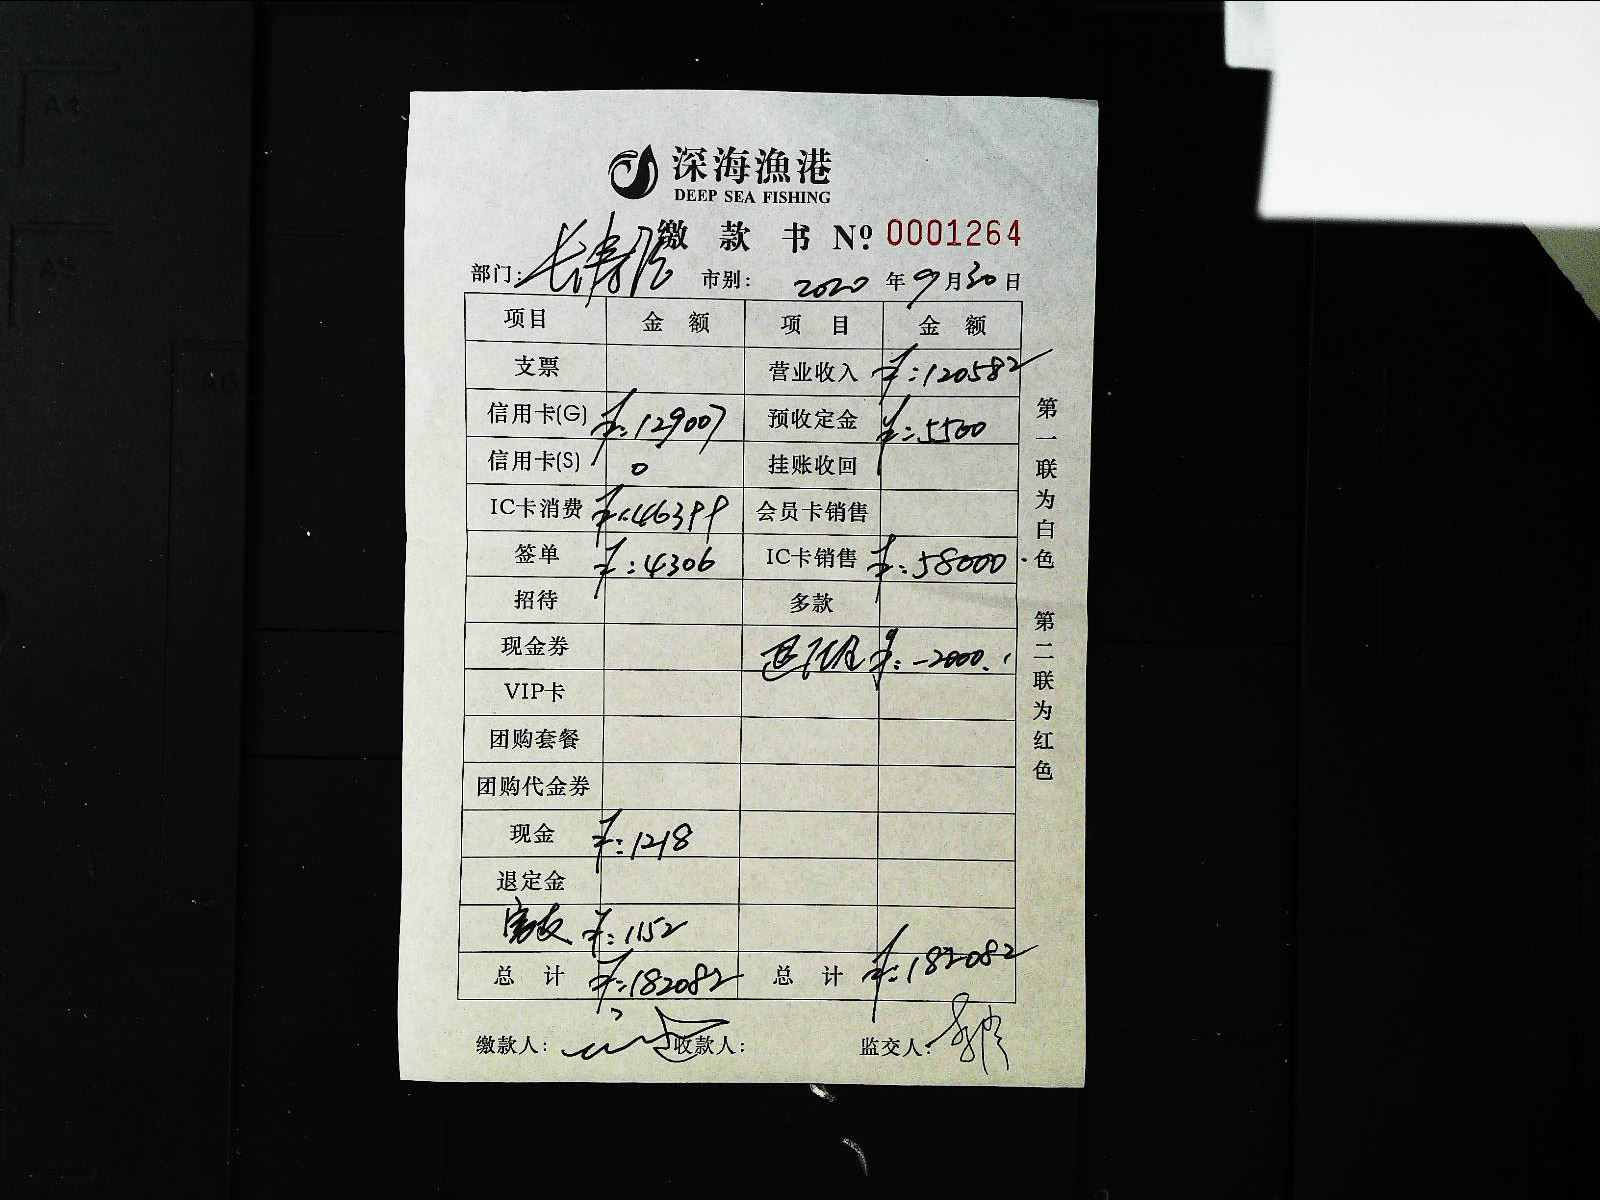 深海漁港
DEEP SEA FISHING
缴款书 Nº 0001264
部门: 长寿 市别: 2020年9月30日
项目 金额 项目 金额
支票 营业收入 ¥:120582
信用卡(G) ¥:129007 预收定金 ¥:5500
信用卡(S) 0 挂账收回
IC卡消费 ¥:46399 会员卡销售
签单 ¥:4306 IC卡销售 ¥:58000
招待 多款
现金券 ¥:-2000
VIP卡
团购套餐
团购代金券
现金 ¥:1218
退定金
¥:1152
总计 ¥:182082 总计 ¥:182082
缴款人: 收款人: 监交人:
第一联为白色 第二联为红色
A4
A5
A6